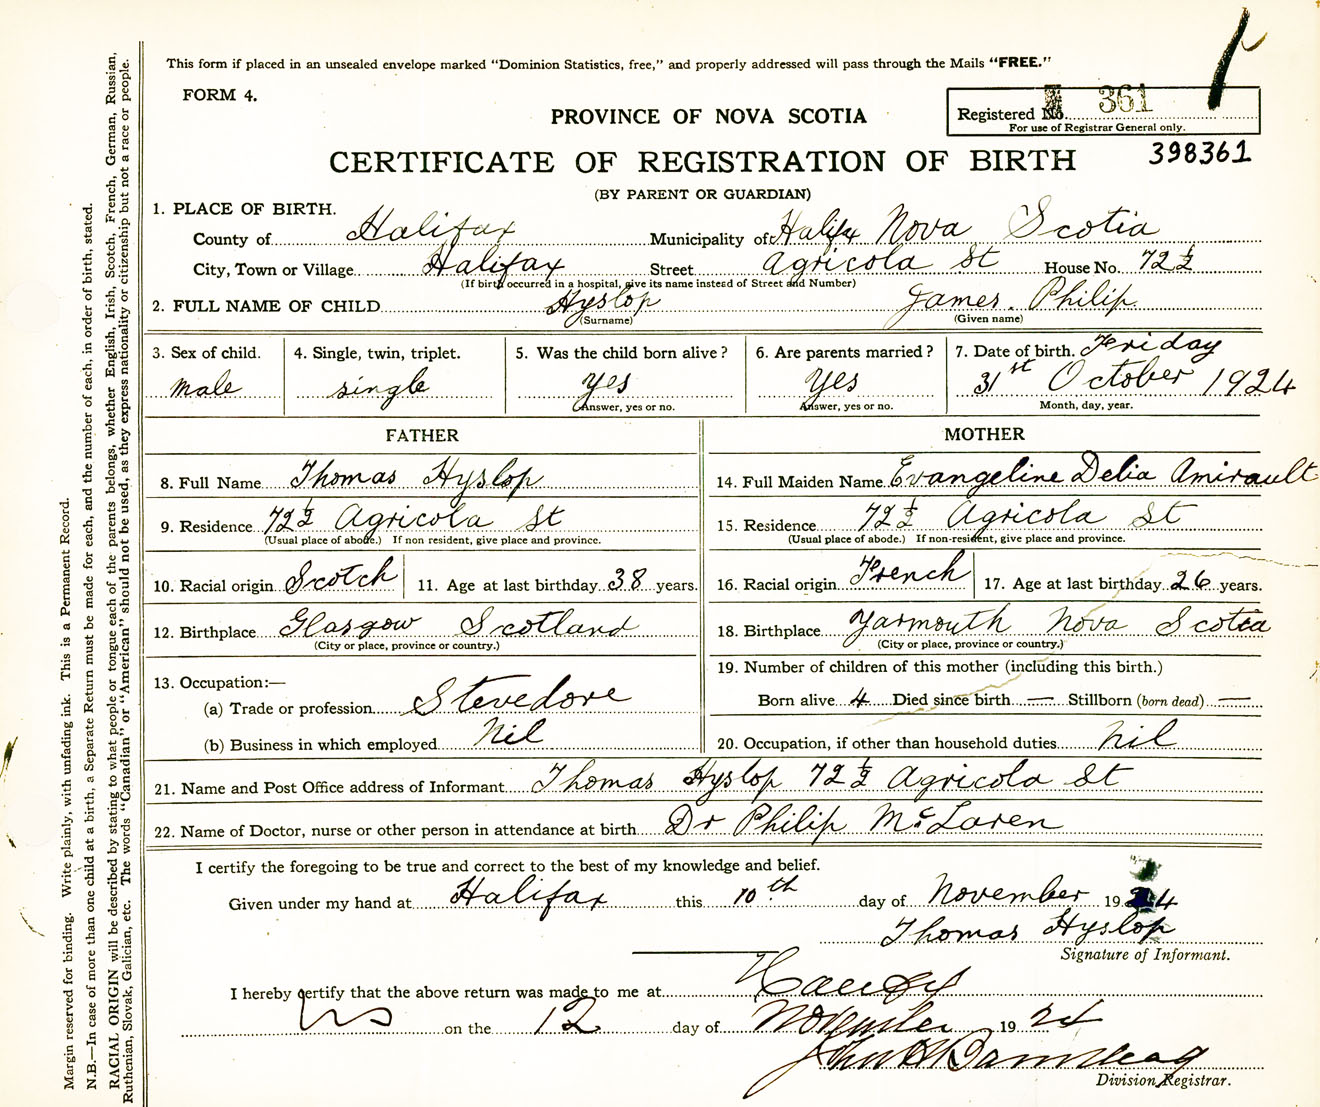 This form if placed in an unsealed envelope marked "Dominion Statistics, free," and properly addressed will pass through the Mails "FREE."
FORM 4.
PROVINCE OF NOVA SCOTIA
Registered No. 361
For use of Registrar General only.
CERTIFICATE OF REGISTRATION OF BIRTH
398361
(BY PARENT OR GUARDIAN)
1. PLACE OF BIRTH.
County of Halifax Municipality of Halifx Nova Scotia
City, Town or Village Halifax Street Agricola St House No. 72 1/2
(If birth occurred in a hospital, give its name instead of Street and Number)
2. FULL NAME OF CHILD Hyslop James Philip
(Surname) (Given name)
3. Sex of child. 4. Single, twin, triplet. 5. Was the child born alive? 6. Are parents married? 7. Date of birth. Friday
male single yes Yes 31st October 1924
Answer, yes or no. Answer, yes or no. Month, day, year.
FATHER MOTHER
8. Full Name Thomas Hyslop 14. Full Maiden Name Evangeline Delia Amirault
9. Residence 72 1/2 Agricola St 15. Residence 72 1/2 Agricola St
(Usual place of abode.) If non resident, give place and province. (Usual place of abode.) If non-resident, give place and province.
10. Racial origin Scotch 11. Age at last birthday 38 years. 16. Racial origin French 17. Age at last birthday 26 years.
12. Birthplace Glasgow Scotland 18. Birthplace Yarmouth Nova Scotia
(City or place, province or country.) (City or place, province or country.)
19. Number of children of this mother (including this birth.)
13. Occupation:—
(a) Trade or profession Stevedore Born alive 4 Died since birth — Stillborn (born dead) —
(b) Business in which employed Nil 20. Occupation, if other than household duties nil
21. Name and Post Office address of Informant Thomas Hyslop 72 1/2 Agricola St
22. Name of Doctor, nurse or other person in attendance at birth Dr Philip McLaren
I certify the foregoing to be true and correct to the best of my knowledge and belief.
Given under my hand at Halifax this 10th day of November 1924
Thomas Hyslop
Signature of Informant.
I hereby certify that the above return was made to me at
NS on the 12 day of November 1924
Division Registrar.
Margin reserved for binding. Write plainly, with unfading ink. This is a Permanent Record.
N.B.—In case of more than one child at a birth, a Separate Return must be made for each, and the number of each, in order of birth, stated.
RACIAL ORIGIN will be described by stating to what people or tongue each of the parents belongs, whether English, Irish, Scotch, French, German, Russian,
Ruthenian, Slovak, Galician, etc. The words "Canadian" or "American" should not be used, as they express nationality or citizenship but not a race or people.